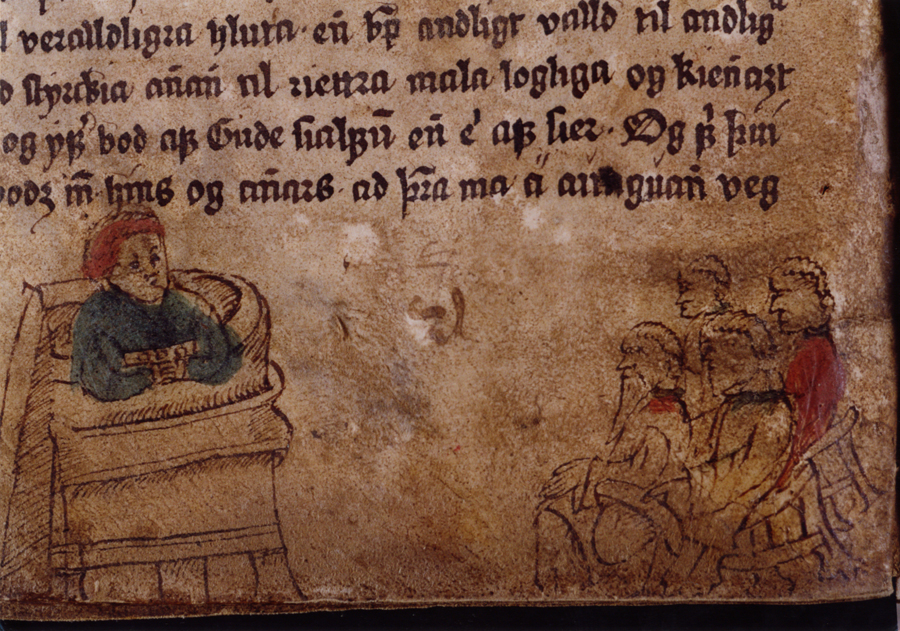 l veralldligra hluta · en̄ bp̄ andligt valld til andligᵃ
d styrckia an̄an̄ til riettra mala logliga og kien̄azt
og yf͛ bod af Gude sialfū en̄ e᷎ af sier · Og þ͛ þui
bodz m̄ hins og an̄ars · ad þr̄a ma
veg